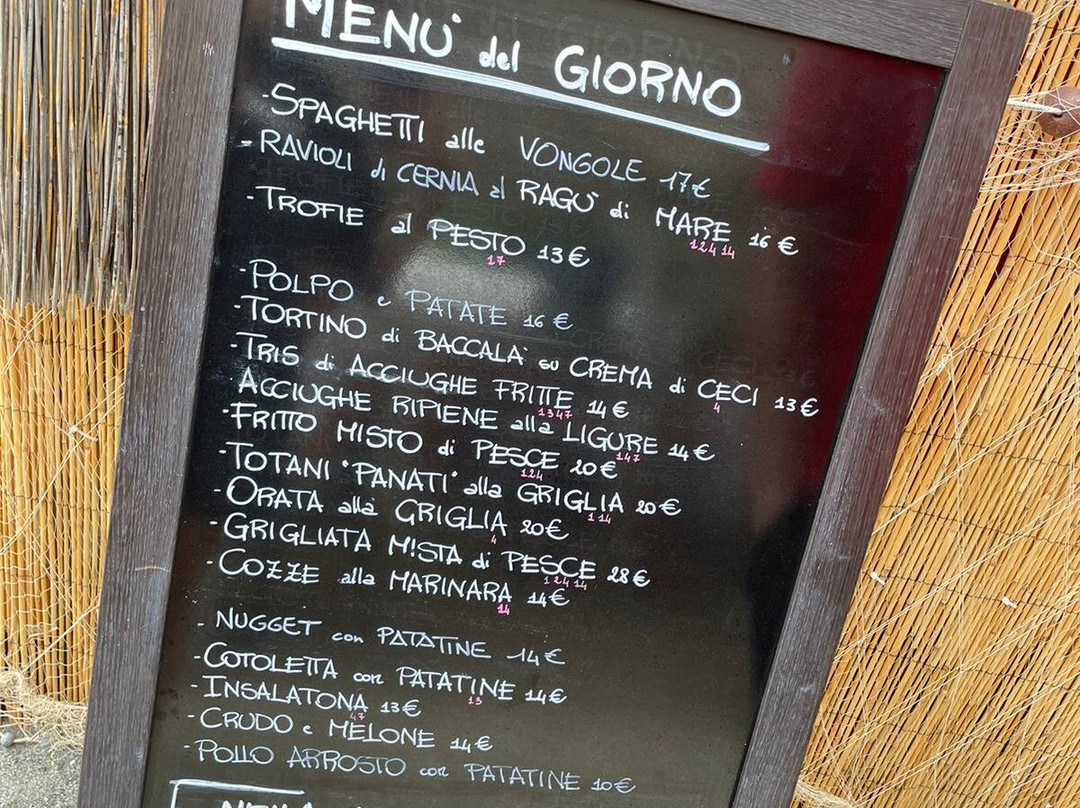 MENÙ del GIORNO
-SPAGHETTI alle VONGOLE 17€
-RAVIOLI di CERNIA al RAGÙ di MARE 16€
1 2 4 14
-TROFIE al PESTO 13€
1 7
-POLPO e PATATE 16€
-TORTINO di BACCALÀ su CREMA di CECI 13€
4
-TRIS di ACCIUGHE FRITTE 14€
1 3 4 7
ACCIUGHE RIPIENE alla LIGURE 14€
1 4 7
-FRITTO MISTO di PESCE 20€
1 2 4
-TOTANI "PANATI" alla GRIGLIA 20€
1 14
-ORATA alla GRIGLIA 20€
4
-GRIGLIATA MISTA di PESCE 28€
1 2 4 14
-COZZE alla MARINARA 14€
14
- NUGGET con PATATINE 14€
-COTOLETTA con PATATINE 14€
1 3
-INSALATONA 13€
4 7
-CRUDO e MELONE 14€
-POLLO ARROSTO con PATATINE 10€